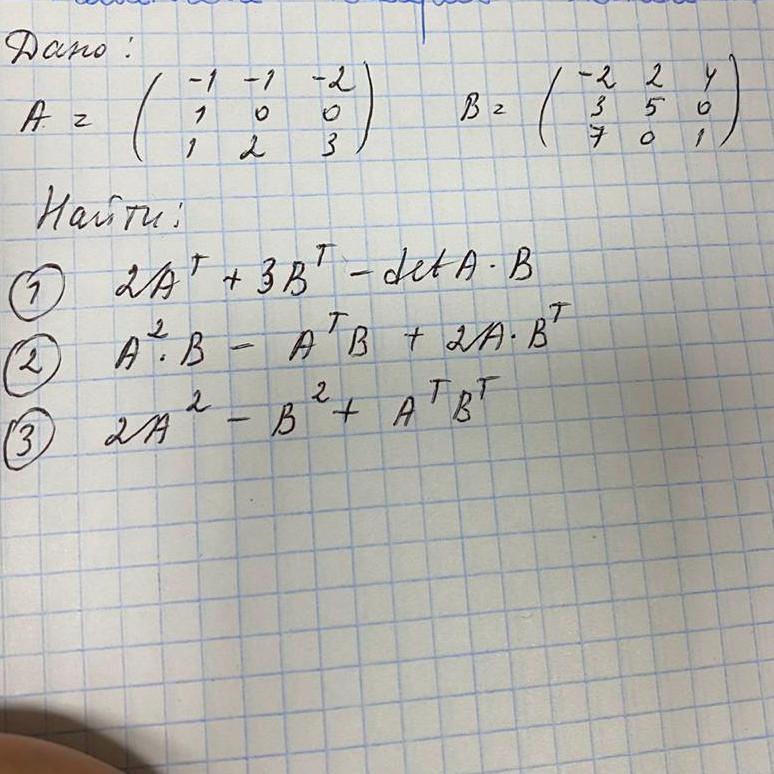 Дано:
A = ( -1 -1 -2 ) B = ( -2 2 4 )
( 1 0 0 ) ( 3 5 0 )
( 1 2 3 ) ( 7 0 1 )
Найти:
① 2Aᵀ + 3Bᵀ - det A · B
② A² · B - AᵀB + 2A · Bᵀ
③ 2A² - B² + AᵀBᵀ